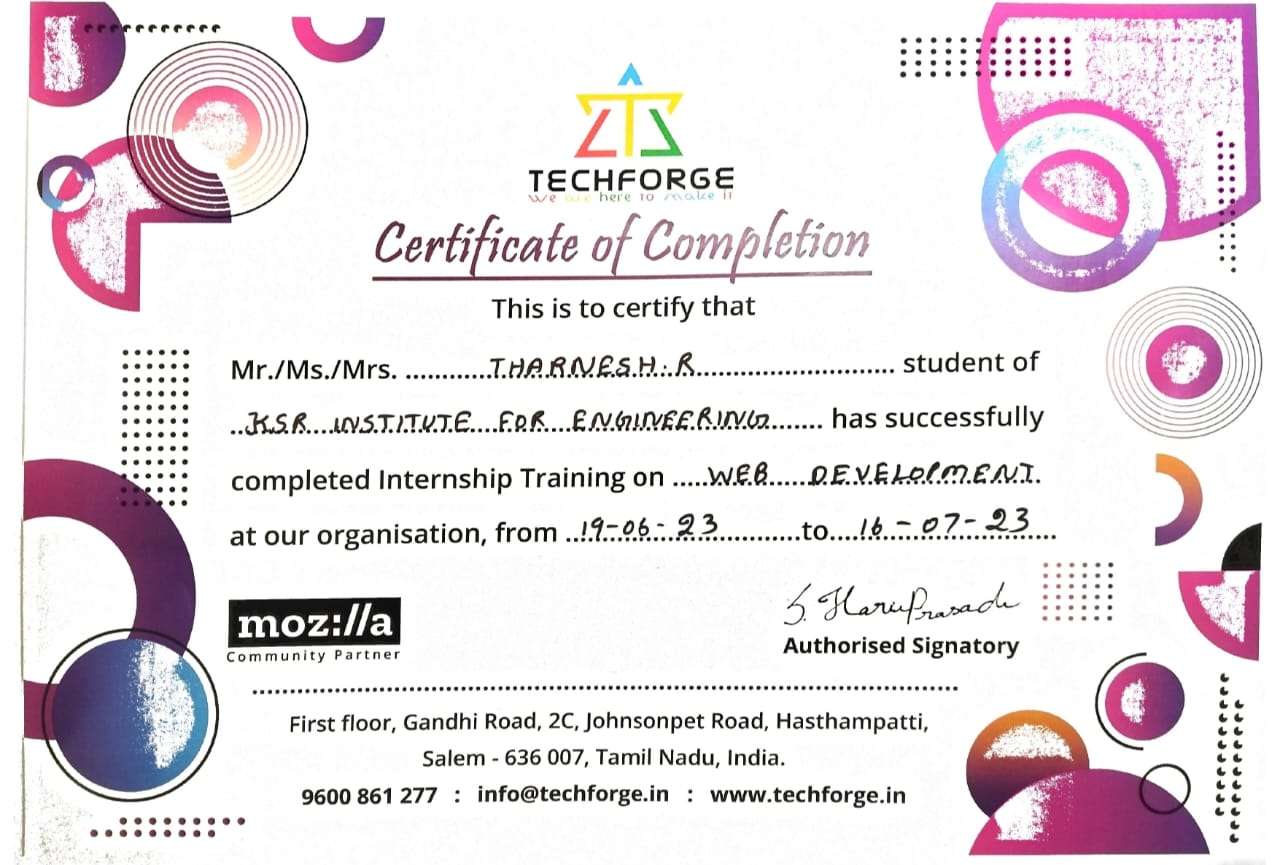 TECHFORGE
We are here to make it
Certificate of Completion
This is to certify that
Mr./Ms./Mrs. THARNESH.R student of
KSR INSTITUTE FOR ENGINEERING has successfully
completed Internship Training on WEB DEVELOPMENT.
at our organisation, from 19-06-23 to 16-07-23
moz://a
Community Partner
S. HariPrasadh
Authorised Signatory
First floor, Gandhi Road, 2C, Johnsonpet Road, Hasthampatti,
Salem - 636 007, Tamil Nadu, India.
9600 861 277 : info@techforge.in : www.techforge.in